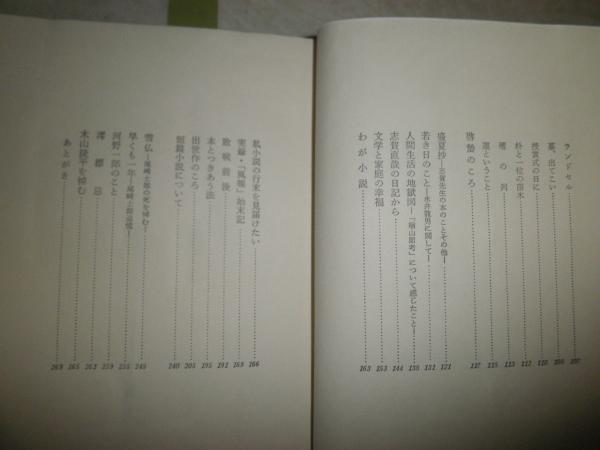 ランドセル
出てこい
授賞式の日に
朴と一位の苗木
の河 113
運ということ 115
啓蟄のころ 117
盛夏抄―志賀先生の本のことその他― 121
若き日のこと―永井龍男に関して― 131
人間生活の地獄図―「楢山節考」について感じたこと― 138
志賀直哉の日記から 144
文学と家庭の幸福 153
わが小説 163
私小説の行末を見届けたい 166
実録・「風報」始末記 169
敗戦前後 192
本とつきあう法 195
出世作のころ 205
短篇小説について 240
雪仏―尾崎士郎の死を悼む― 248
早くも一年―尾崎士郎追憶― 255
河野一郎のこと 259
澪標忌 262
木山捷平を悼む 265
あとがき 269